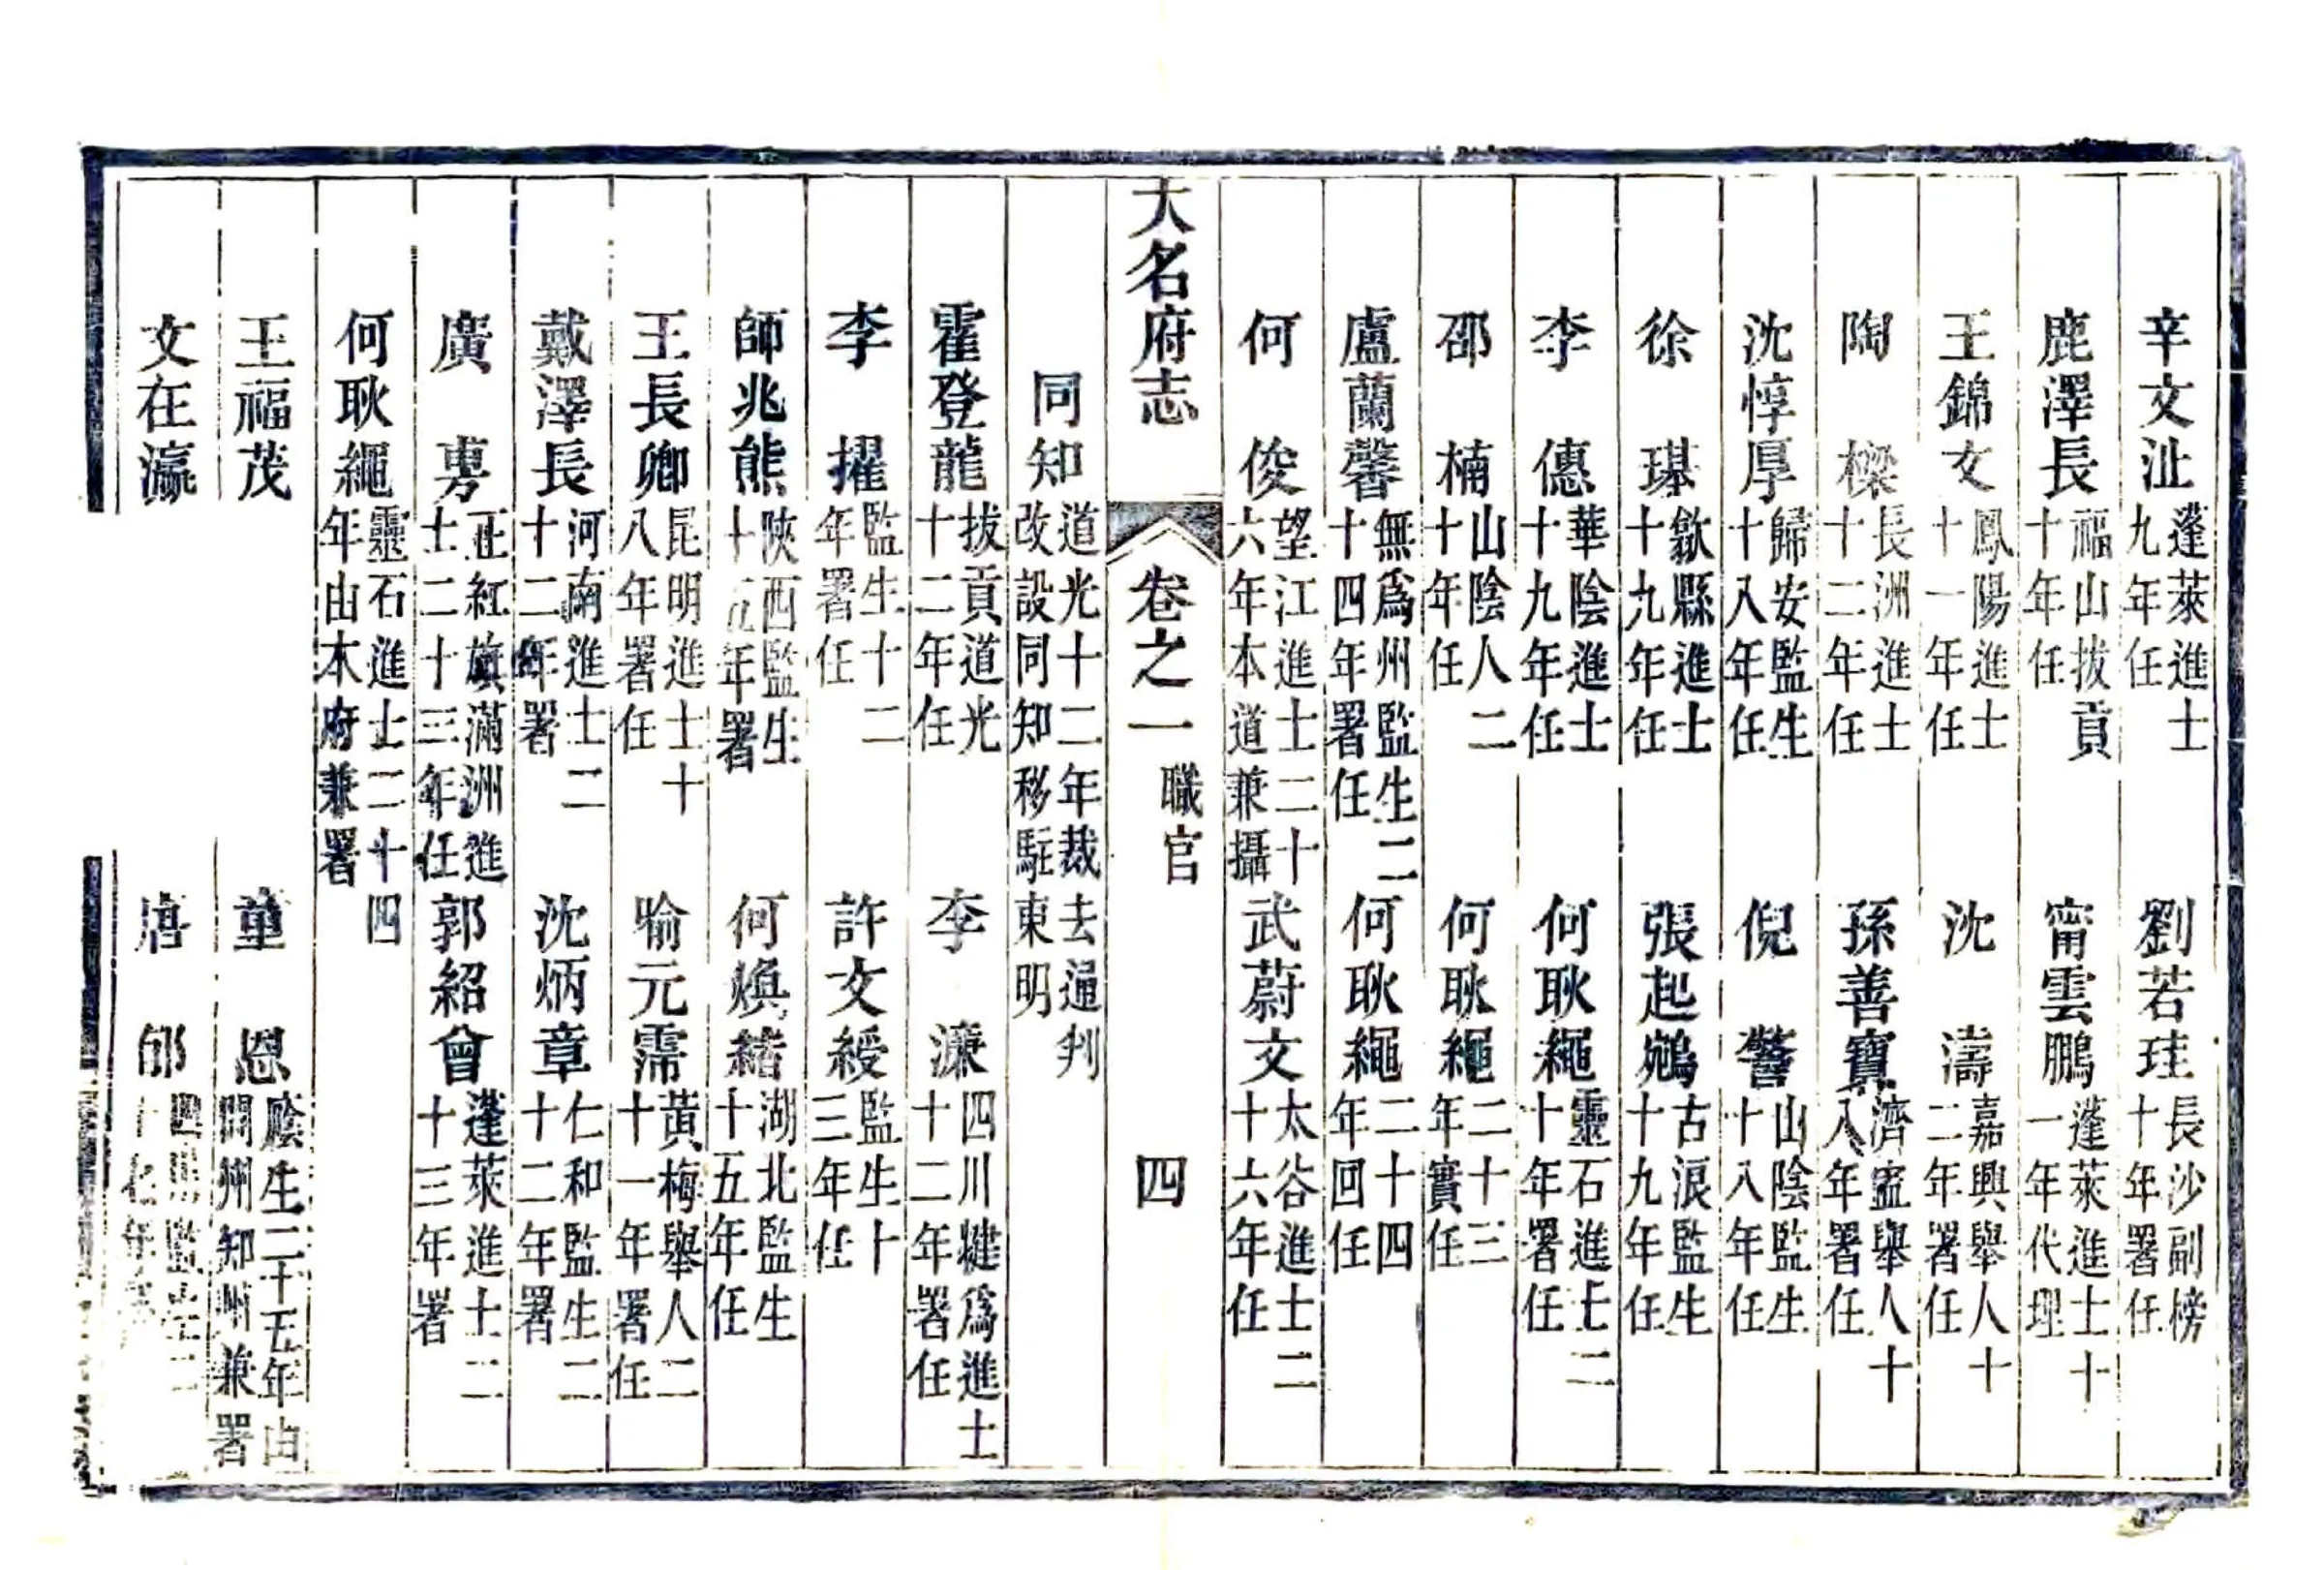 辛文沚蓬萊進士九年任　劉若珪長沙副榜十年署任
鹿澤長福山拔貢十年任　甯雲鵬蓬萊進士十一年代理
王錦文鳳陽進士十一年任　沈濤嘉興舉人十二年署任
陶樑長洲進士十二年任　孫善寶濟寧舉人十八年署任
沈惇厚歸安監生十八年任　倪警山陰監生十八年任
徐璂歙縣進士十九年任　張起鵷古浪監生十九年任
李僡華陰進士十九年任　何耿繩靈石進士二十年署任
邵楠山陰人二十年任　何耿繩二十三年實任
盧蘭馨無爲州監生二十四年署任　何耿繩二十四年回任
何俊望江進士二十六年本道兼攝　武蔚文太谷進士二十六年任
大名府志　卷之一　職官　四
同知道光十二年裁去通判改設同知移駐東明
霍登龍拔貢道光十二年任　李濂四川犍爲進士十二年署任
李擢監生十二年署任　許文綬監生十三年任
師兆熊陝西監生十五年署　何煥緒湖北監生十五年任
王長卿昆明進士十八年署任　喻元霈黃梅舉人二十一年署任
戴澤長河南進士二十二年署　沈炳章仁和監生二十二年署
廣尃正紅旗滿洲進士二十三年任　郭紹曾蓬萊進士二十三年署
何耿繩靈石進士二十四年由本府兼署
王福茂　童恩廕生二十五年由開州知州兼署
文在瀛　唐邰監生二十七年